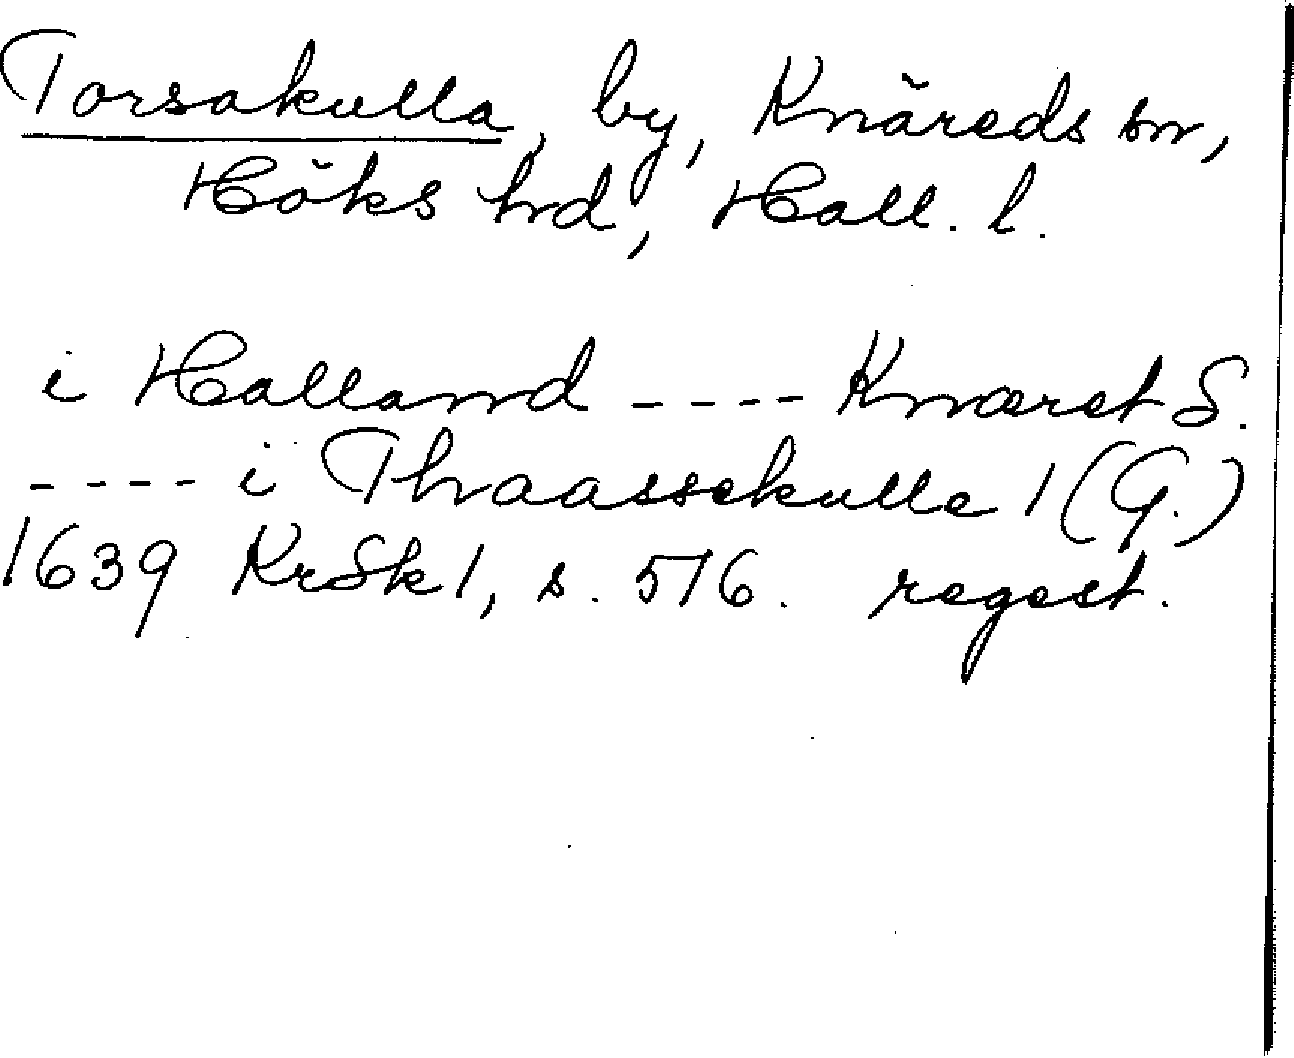 Torsakulla, by, Knäreds sn,
Höks hrd, Hall. l.
i Halland ---- Knæret S.
---- i Thraassekulle 1 (G.)
1639 KrSk 1, s. 576. regest.